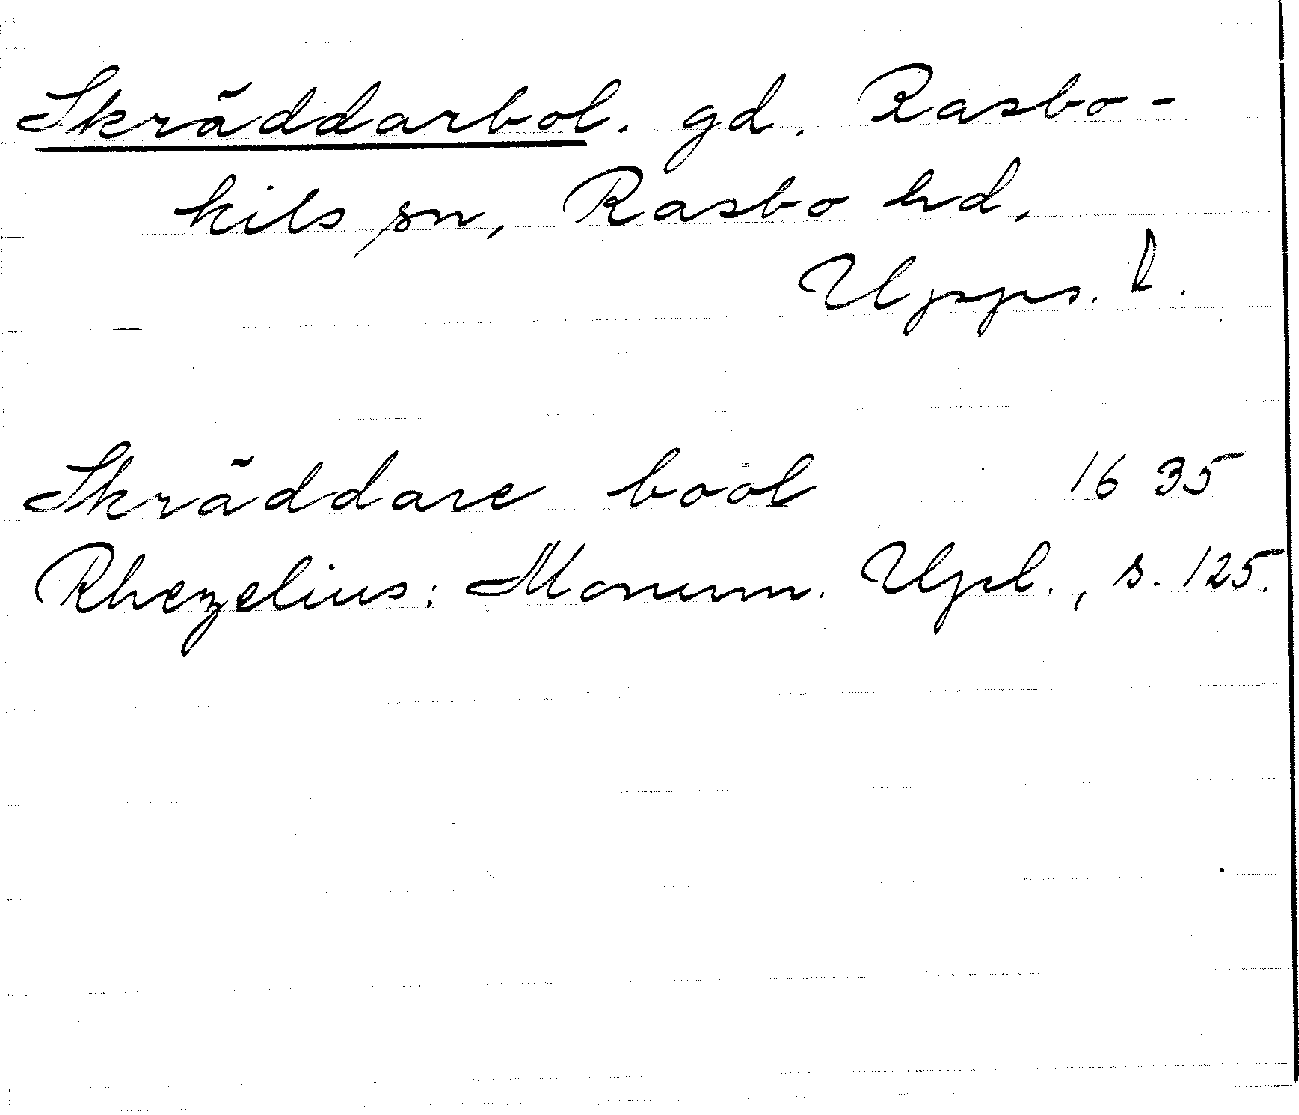 Skräddarbol. gd. Rasbo-
kils sn, Rasbo hd,
Upps. l.
Skräddare boöl 1635
Rhezelius: Monum. Upl., s. 125.